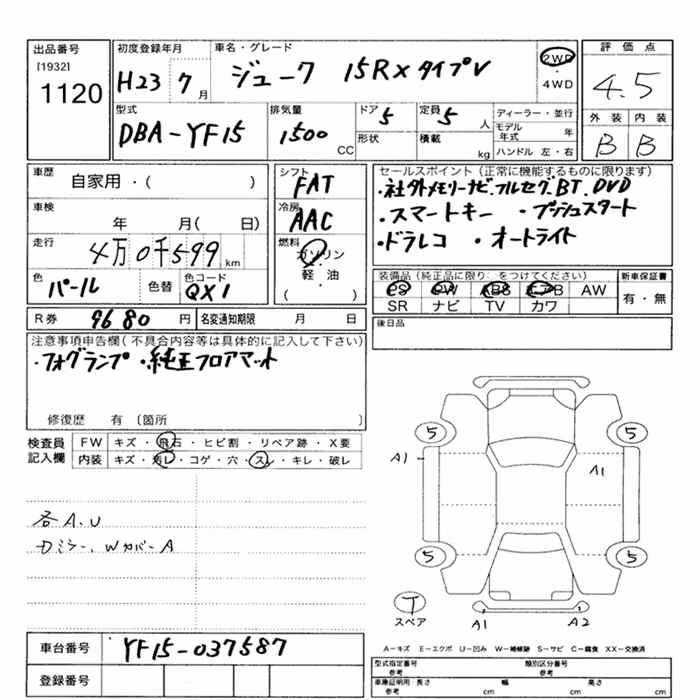 出品番号
[1932]
1120
初度登録年月
H23 7 月
車名・グレード
ジューク 15RX タイプV
2WD
・
4WD
評価点
4.5
外装 内装
B B
型式
DBA-YF15
排気量
1500 CC
ドア 5
形状
定員 5 人
積載 kg
ディーラー・並行
モデル年式 年
ハンドル 左・右
車歴 自家用・( )
車検 年 月( 日)
走行 4万0千599 km
色 パール 色替 色コード QX1
シフト
FAT
冷房
AAC
燃料
ガソリン
軽・油
( )
セールスポイント(正常に機能するものに限ります)
・社外メモリーナビ、フルセグ、BT、DVD
・スマートキー ・プッシュスタート
・ドラレコ ・オートライト
装備品(純正品に限り をつけてください)
PS PW ABS エアB AW
SR ナビ TV カワ
新車保証書
有・無
R券 9680 円 名変通知期限 月 日
後日品
注意事項申告欄(不具合内容等は具体的に記入して下さい)
・フォグランプ ・純正フロアマット
修復歴 有 〔箇所 〕
検査員
記入欄
FW キズ・飛石・ヒビ割・リペア跡・X要
内装 キズ・汚レ・コゲ・穴・スレ・キレ・破レ
各A、U
力ミラー、WカバーA
5 5
A1 A1
5 5
T
スペア
A1 A2
車台番号 YF15-037587
登録番号
A−キズ E−エクボ U−凹み W−補修跡 S−サビ C−腐食 XX−交換済
型式指定番号
参考
類別区分番号
参考
車庫証明用 長さ
参考 cm
幅
cm
高さ
cm